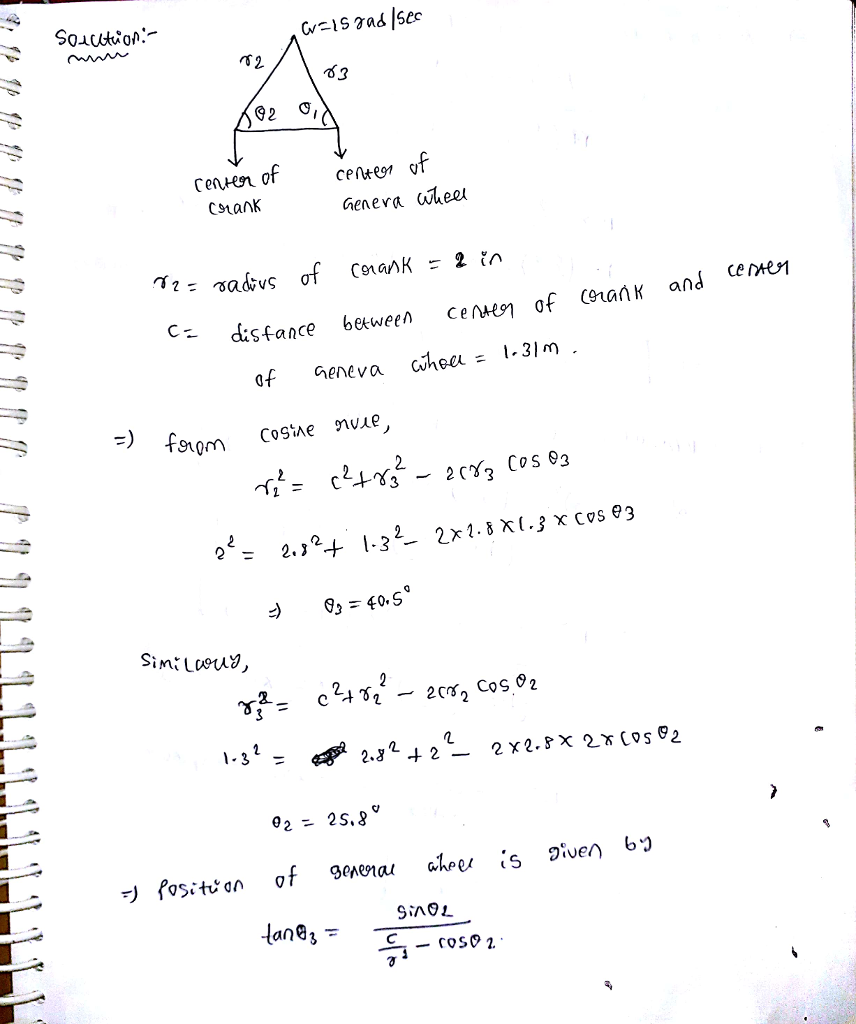 Solution:-
ω=15 rad/sec
r2
r3
θ2 θ1
center of crank
center of Geneva wheel
r2 = radius of crank = 2 in
C = distance between center of crank and center
of Geneva wheel = 1.31m.
=) from cosine rule,
r2² = c²+r3² - 2cr3 cos θ3
2² = 2.8²+ 1.3² - 2x2.8x1.3 x cos θ3
=) θ3 = 40.5°
Similarly,
r3² = c²+r2² - 2cr2 cos θ2
1.3² = 2.8² + 2² - 2x2.8x2xcosθ2
θ2 = 25.8°
=) Position of general wheel is given by
tanθ3 = sinθ2 / (c/r2 - cosθ2)